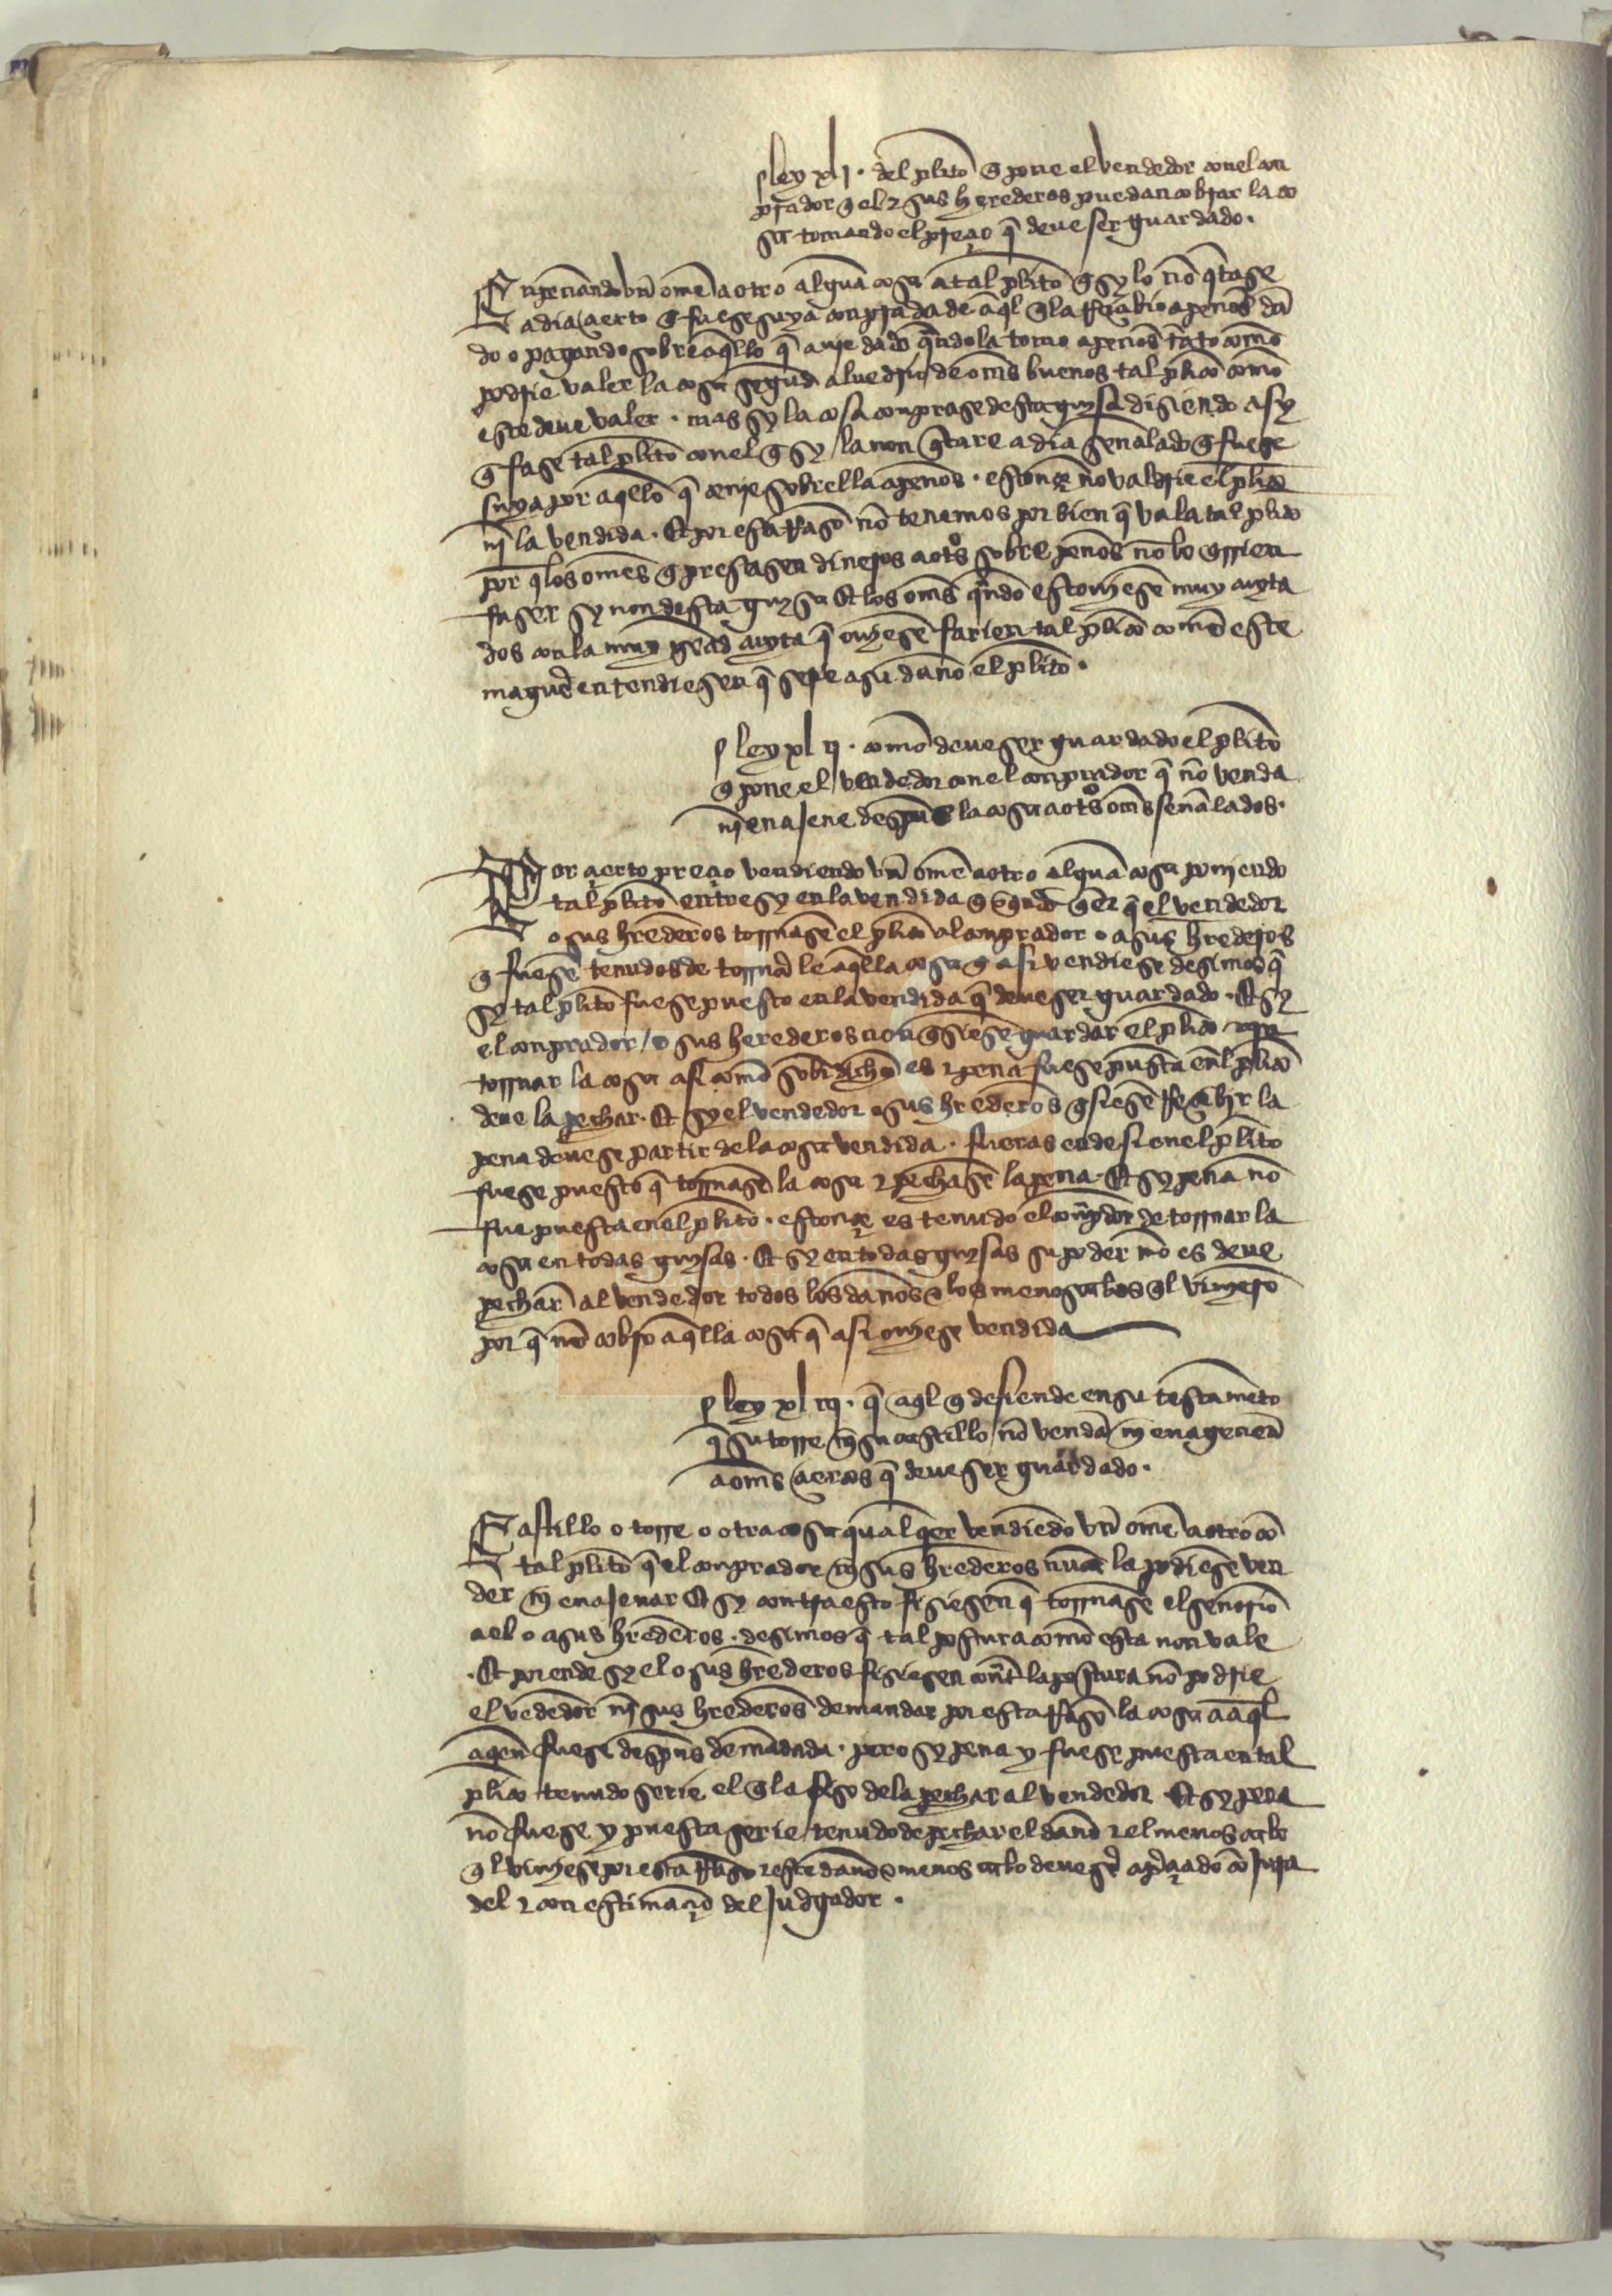 ley xlj. del plito q̃ pone el vendedor conel con
prador q̃ el z sus herederos puedan cobrar la co
sa tornando el preçio q̃ deue ser guardado.
Enpeñando vñ ome a otro algua cosa a tal plito q̃ sy lo nõ qtase
a dia çierto q̃ fuese suya conprada de aql q̃ la rreçibio a peños dã
do o pagando sobre aqllo q̃ auie dado qñdo la tomo a peños tãto como
podrie valer la cosa segud aluedrio de oms buenos tal plito como
este deue valer. mas sy la cosa conprase desta guysa disiendo asy
q̃ fase tal plito conel q̃ sy la non qtare a dia señalado q̃ fuese
suya por aqello q̃ sobrella a peños. estonçe no valdrie el plito
nj la vendida. Et por esta rrasõ nõ tenemos por bien q̃ vala tal plito
por q̃ los omes q̃ prestasen dineros a otos sobre peños nõ lo qrrien
faser sy non desta guysa Et los oms qñdo estouiesẽ muy cuyta
dos con la muy grãd cuyta q̃ ouiesẽ farien tal plito como este
maguer entendiesen q̃ serie a su daño el plito.
ley xl ij. como deue ser guardado el plito
q̃ pone el vendedor conel conprador q̃ nõ venda
nj enajene despues la cosa a otos oms señalados.
Por çierto preçio vendiendo vñ ome a otro algua cosa ponjendo
tal plito entre sy en la vendida q̃ qñdo qer q̃ el vendedor
o sus hrederos tornasẽ el pliã al conprador o a sus hrederos
q̃ fuesẽ tenudos de tornar le aqlla cosa q̃ asi vendiese desimos q̃
sy tal plito fuese puesto en la vendida q̃ deue ser guardado. Et sy
el conprador o sus herederos non qsiesẽ guardar el plito
tornar la cosa asi como sobredicho es z pena fuese puesta enl plito
deue la pechar. Et sy el vendedor o sus hrederos qsiesẽ rreçibjr la
pena deuese partir de la cosa vendida. fueras ende si en el plito
fuese puesto q̃ tornasẽ la cosa z pechasẽ la pena. Et sy pena nõ
fue puesta en el plito. estonçe es tenudo el conpdor de tornar la
cosa en todas guysas. Et sy en todas guysas su poder nõ es deue
pechar al vendedor todos los daños z los menoscabos q̃l viniero
por q̃ nõ cobro aqlla cosa q̃ asi ouiese vendida
ley xl iij. q̃ aql q̃ defiende en su testameto
q̃ su torre nj su castillo nõ vendã nj enagenen
a oms çiertos q̃ deue ser guardado.
Castillo o torre o otra cosa qualqer vendiedo vñ ome a otro cõ
tal plito q̃ el conprador nj sus hrederos nuca la podiesẽ ven
der nj enajenar Et sy contra esto fisiesen q̃ tornase el señorio
a el o a sus hrederos. desimos q̃ tal postura como esta non vale
. Et por ende sy el o sus hrederos fisiesen cont la postura nõ podrie
el vededor nj sus hrederos demandar por esta rrasõ la cosa a aql
a qen fuese despues demãdada. pero sy pena y fuese puesta en tal
plito tenudo serie el q̃ la fiso de la pechar al vendedor Et sy pena
nõ fuese y puesta serie tenudo de pechar el daño z el menoscabo
q̃ l viniese por esta rrasõ z este daño z menoscabo deue ser apreçiado cõ jura
del z con estimaçiõ del judgador.